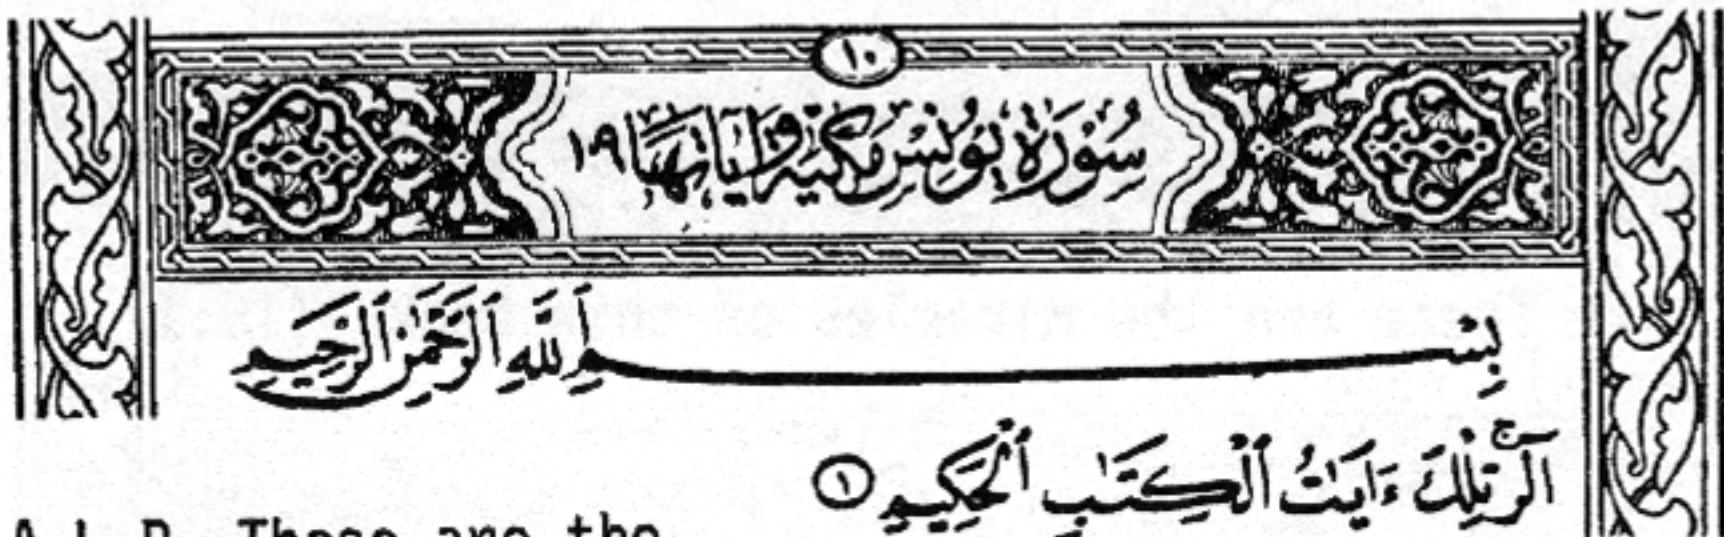 ١٠
سُورَةُ يُونُسَ مَكِّيَّة وَآيَاتُهَا ١٠٩
بِسْمِ ٱللَّهِ ٱلرَّحْمَٰنِ ٱلرَّحِيمِ
الٓرۚ تِلْكَ ءَايَٰتُ ٱلْكِتَٰبِ ٱلْحَكِيمِ ١
A.L.R. These are the